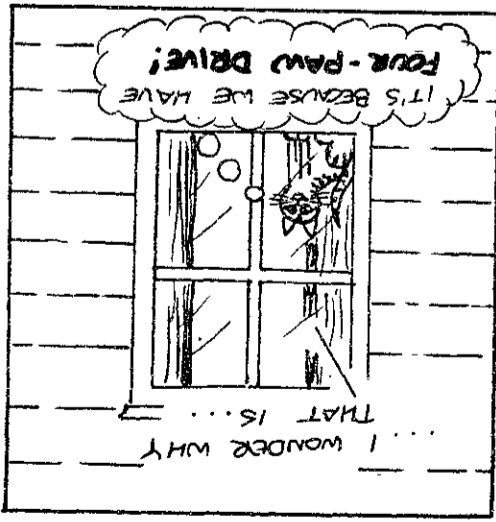 ... I WONDER WHY
THAT IS...
IT'S BECAUSE WE HAVE
FOUR-PAW DRIVE!